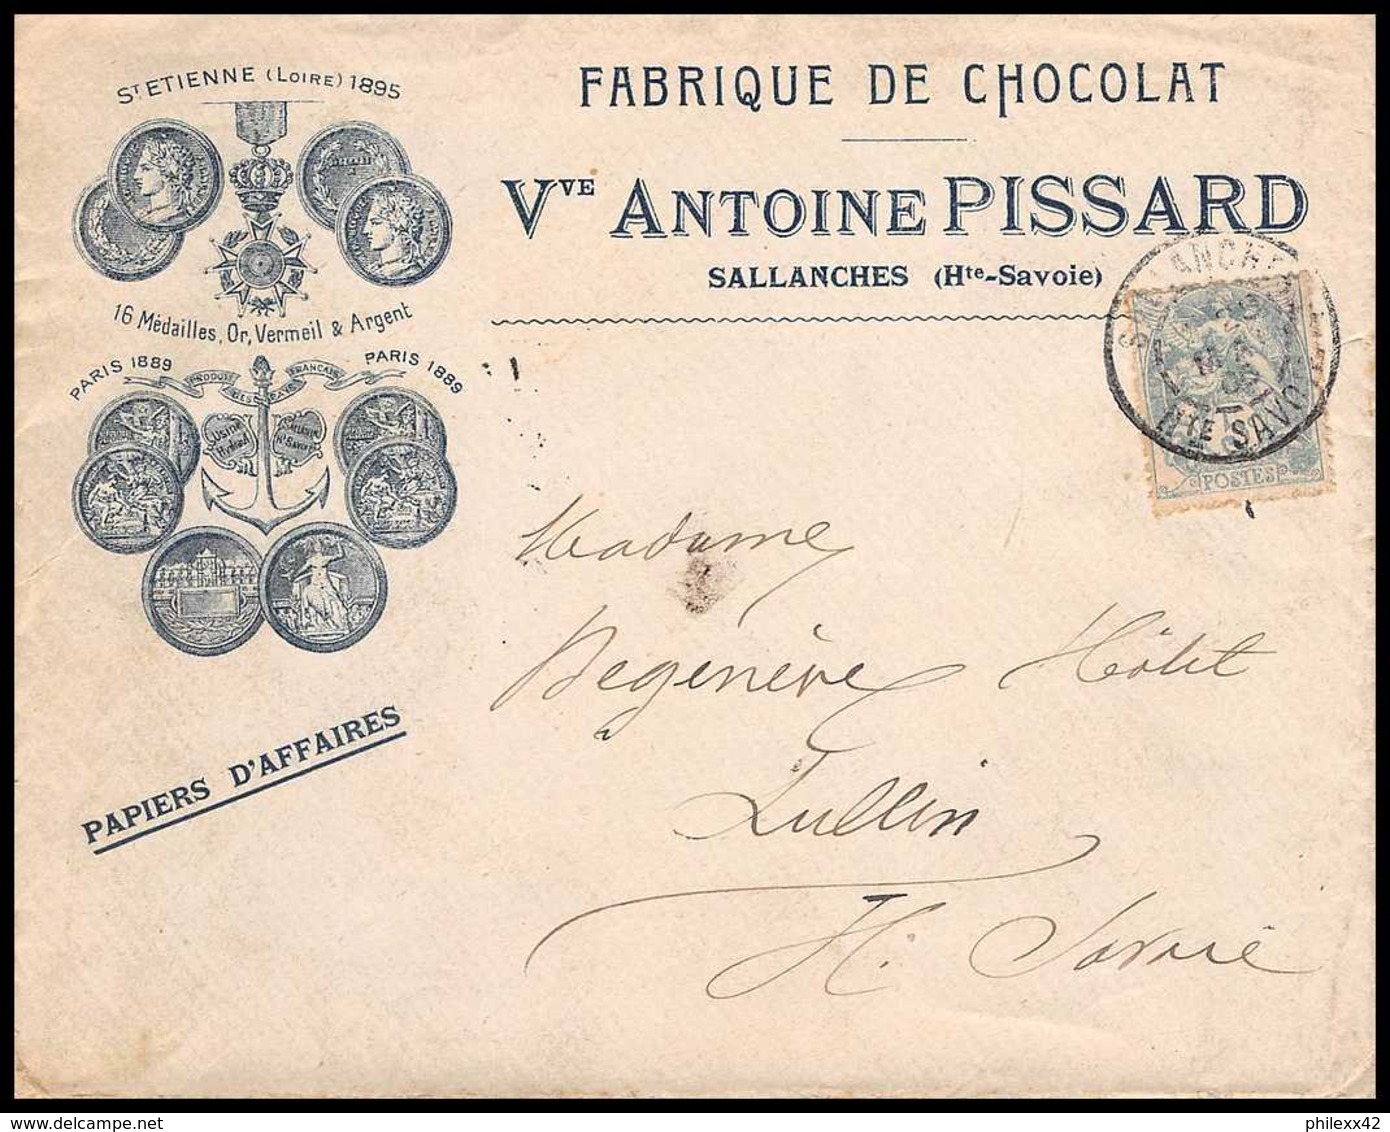 ST ETIENNE (LOIRE) 1895
16 Médailles, Or, Vermeil & Argent
PARIS 1889
PARIS 1889
PRODUIT DES PAYS FRANÇAIS
FABRIQUE DE CHOCOLAT
VVE ANTOINE PISSARD
SALLANCHES (Hte-Savoie)
SALLANCHES
HTE SAVOIE
POSTES
Madame
Degenève Hôtel
Lullin
H. Savoie
PAPIERS D'AFFAIRES
philexx42